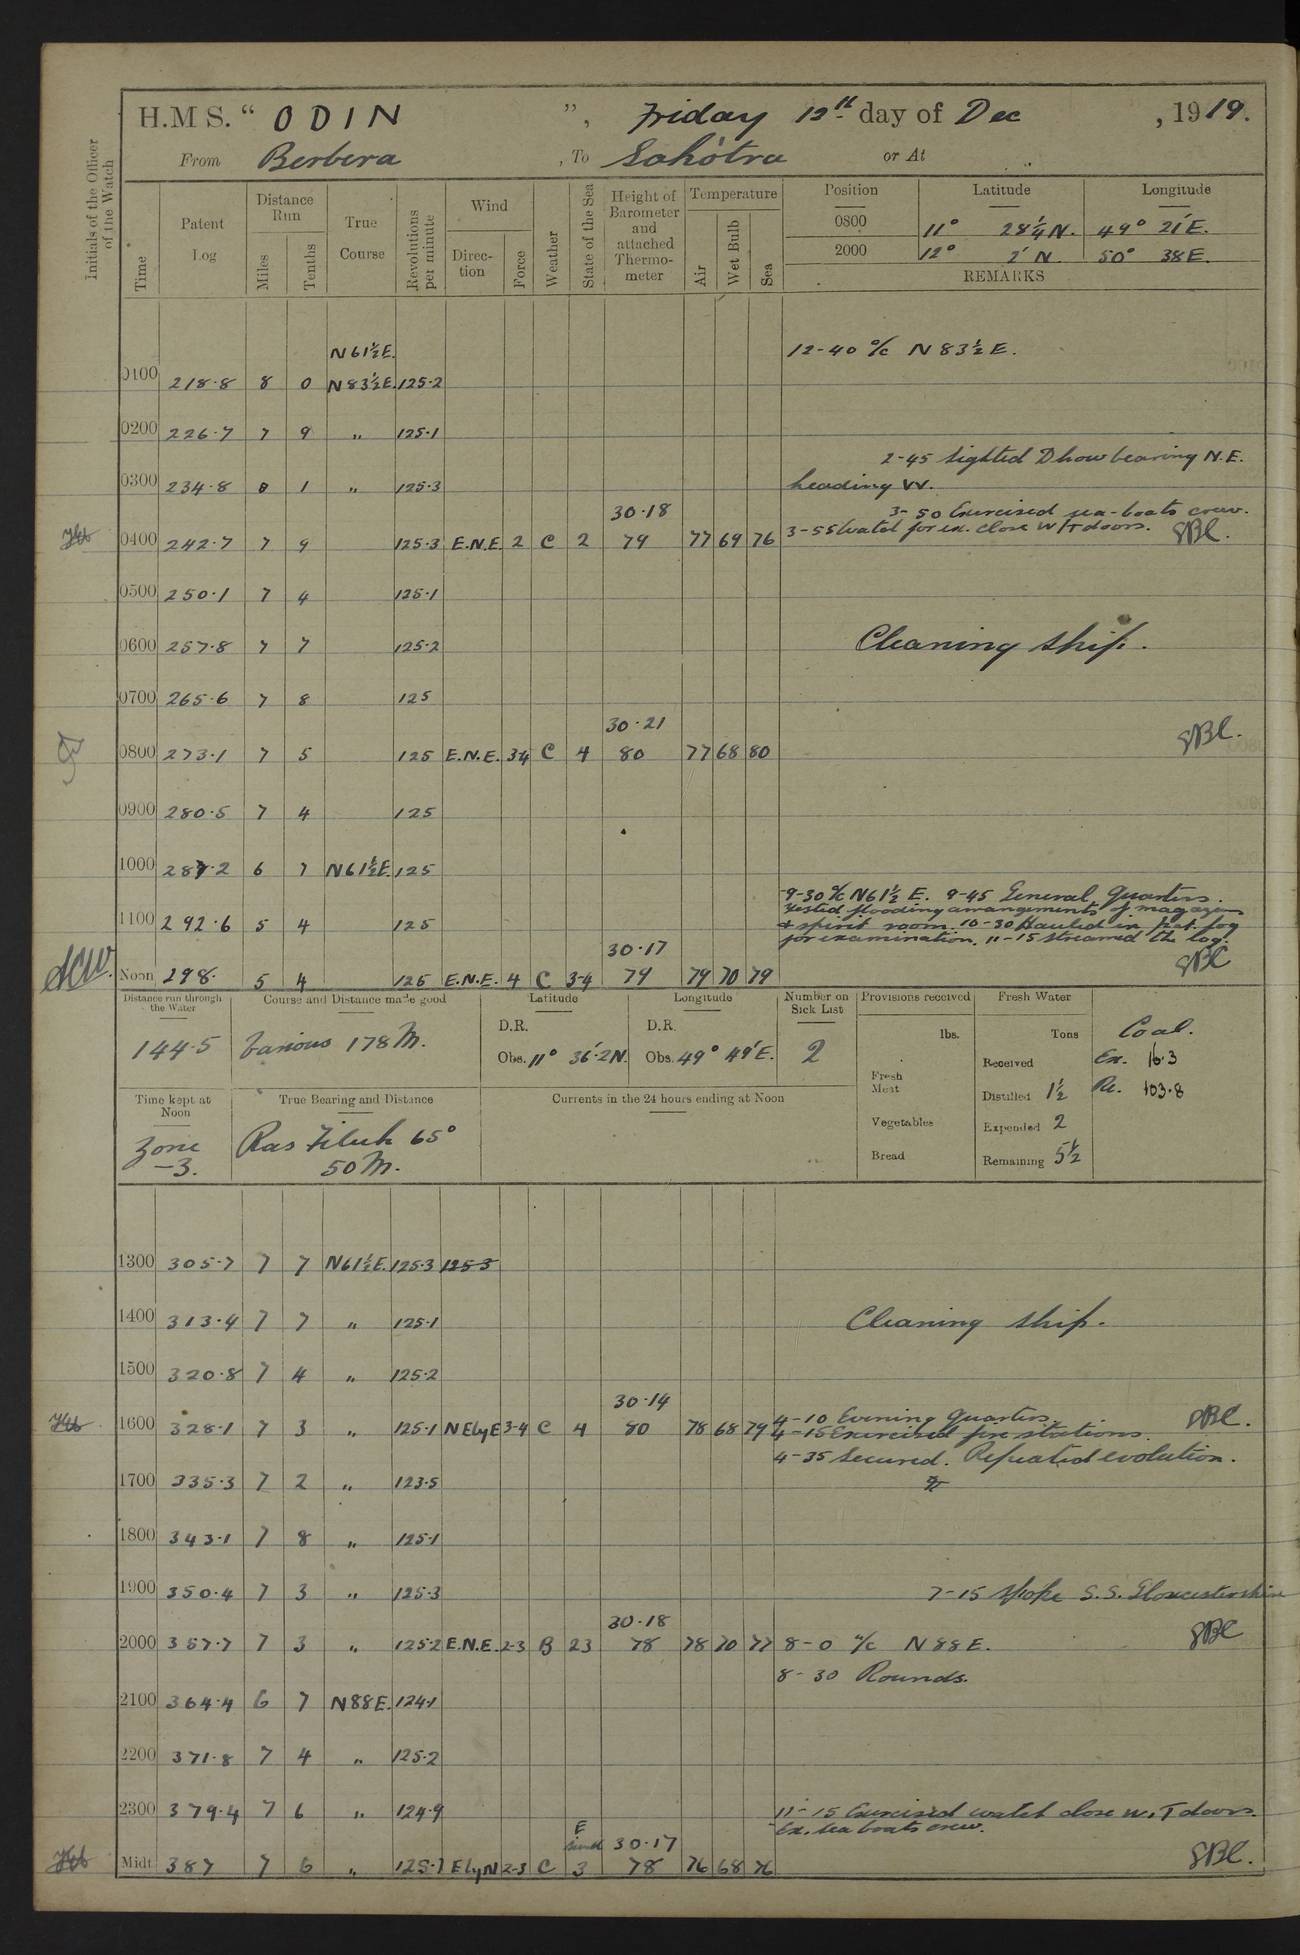 H.M S. “ ODIN ”, Friday 12th day of Dec , 1919.
From Berbera , To Sokótra or At
Initials of the Officer of the Watch
Time Patent Log Distance Run Miles Tenths True Course Revolutions per minute Wind Direc-tion Force Weather State of the Sea Height of Barometer and attached Thermo-meter Temperature Air Wet Bulb Sea Position Latitude Longitude
0800 11° 28¼ N. 49° 21' E.
2000 12° 2' N. 50° 38 E.
REMARKS
N 61½ E. 12-40 a/c N 83½ E.
0100 218.8 8 0 N 83½ E. 125.2
0200 226.7 7 9 " 125.1
2-45 Sighted Dhow bearing N.E.
0300 234.8 8 1 " 125.3 heading W.
30.18 3-50 Exercised sea-boats crew.
0400 242.7 7 9 125.3 E.N.E. 2 C 2 79 77 69 76 3-55 Watch for ex. close W/T doors. SBC.
0500 250.1 7 4 125.1
0600 257.8 7 7 125.2 Cleaning ship.
0700 265.6 7 8 125
30.21
0800 273.1 7 5 125 E.N.E. 3-4 C 4 80 77 68 80 SBC.
0900 280.5 7 4 125
1000 287.2 6 7 N 61½ E. 125
9-30 a/c N 61½ E. 9-45 General Quarters.
Tested flooding arrangements of magazines
1100 292.6 5 4 125 & spirit room. 10-30 Hauled in Pat. Log
30.17 for examination. 11-15 streamed the log.
Noon 298. 5 4 125 E.N.E. 4 C 3-4 79 79 70 79 SBC
Distance run through the Water Course and Distance made good Latitude Longitude Number on Sick List Provisions received Fresh Water
144.5 Various 178 M. D.R. D.R. 2 lbs. Tons Coal.
Obs. 11° 36'.2 N. Obs. 49° 49' E. Received Ex. 16.3
Fresh Meat Distilled 1½ Re. 103.8
Time kept at Noon True Bearing and Distance Currents in the 24 hours ending at Noon
Vegetables Expended 2
Zone -3. Ras Filuk 65° 50 M. Bread Remaining 5½
1300 305.7 7 7 N 61½ E. 125.3 125.3
1400 313.4 7 7 " 125.1 Cleaning ship.
1500 320.8 7 4 " 125.2
30.14 4-10 Evening Quarters.
1600 328.1 7 3 " 125.1 NEbyE 3-4 C 4 80 78 68 79 4-15 Exercised fire stations. SBC.
4-35 Secured. Repeated evolution.
1700 335.3 7 2 " 123.5
1800 343.1 7 8 " 125.1
1900 350.4 7 3 " 125.3 7-15 Spoke S.S. Gloucestershire
30.18
2000 357.7 7 3 " 125.2 E.N.E. 2-3 B 23 78 78 70 77 8-0 a/c N 88 E. SBC
8-30 Rounds.
2100 364.4 6 7 N 88 E. 124.1
2200 371.8 7 4 " 125.2
2300 379.4 7 6 " 124.9 11-15 Exercised watch close W.T doors.
E 30.17 Ex. sea boats crew.
Midt. 387 7 6 " 125.1 EbyN 2-3 C 3 78 76 68 76 SBC.